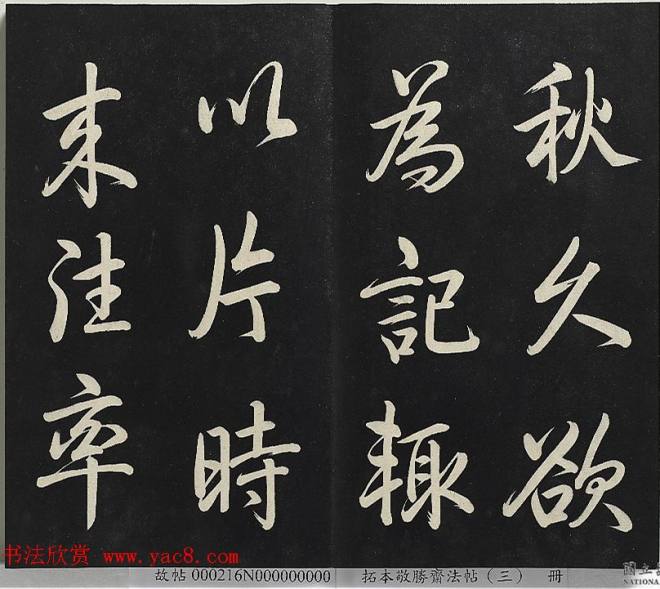 秋久欲
為記輙
以片時
来往率
书法欣赏 www.yac8.com
故帖 000216N000000000 拓本敬勝齋法帖（三） 冊
國立
NATIONAL